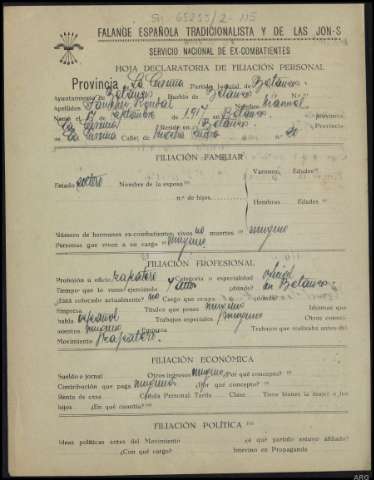 Sn. 65255/2-115
FALANGE ESPAÑOLA TRADICIONALISTA Y DE LAS JON-S
SERVICIO NACIONAL DE EX-COMBATIENTES
HOJA DECLARATORIA DE FILIACIÓN PERSONAL
Provincia de La Coruña Partido Judicial de Betanzos
Ayuntamiento de Betanzos Pueblo de Betanzos N.º
Apellidos Nombre Manuel
Nació el de septiembre de 1917 en Betanzos provincia
La Coruña Residió en Betanzos Provincia
La Coruña Calle, de N.º 20
FILIACIÓN FAMILIAR
Varones, Edades
Estado soltero Nombre de la esposa
n.º de hijos,
Hembras Edades
Número de hermanos ex-combatientes, vivos no muertos ninguno
Personas que viven a su cargo ninguno
FILIACIÓN PROFESIONAL
Profesión u oficio, zapatero Categoría o especialidad oficial
Tiempo que lo viene ejerciendo 4 años ¿dónde? en Betanzos
¿Está colocado actualmente? no Cargo que ocupa ¿dónde?
Empresa Títulos que posee ninguno Idiomas que
habla español Trabajos especiales ninguno Otros conoci-
mientos ninguno Empresa Trabajos que realizaba antes del
Movimiento zapatero
FILIACIÓN ECONÓMICA
Sueldo o jornal Otros ingresos ninguno ¿Por qué concepto?
Contribución que paga ninguna ¿Por qué concepto?
Exenta de casa Cédula Personal Tarifa Clase Tiene bienes la mujer o los
hijos ¿En qué cuantía?
FILIACIÓN POLÍTICA
Ideas políticas antes del Movimiento ¿a qué partido estuvo afiliado?
¿Con qué cargo? Intervino en Propaganda
ARG